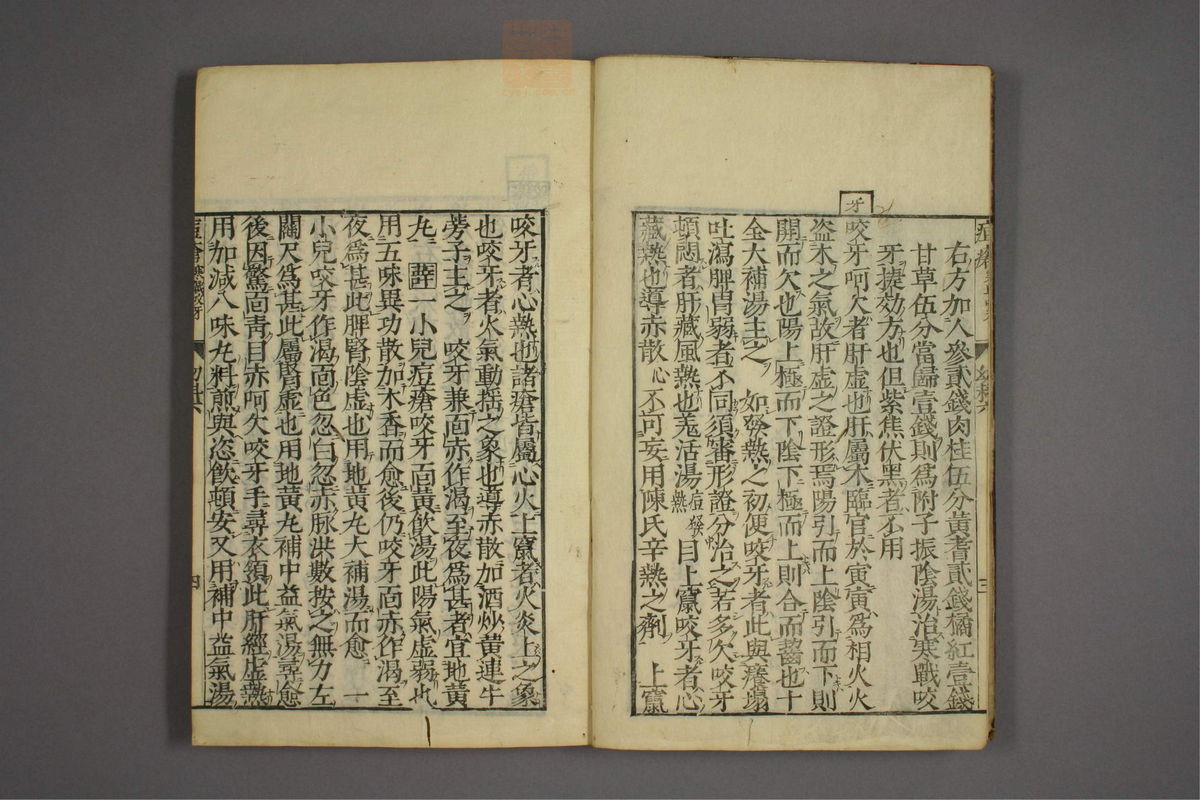 右方加人參貳錢肉桂伍分黃耆貳錢橘紅壹錢
甘草伍分當歸壹錢則爲附子振陰湯治寒戰咬
牙捷効方也但紫焦伏黑者不用
牙
咬牙呵欠者肝虚也肝屬木臨官於寅寅爲相火火
盗木之氣故肝虚之證形焉陽引而上陰引而下則
開而欠也陽上極而下陰下極而上則合而齧也十
全大補湯主之　如發熱之初便咬牙者此與癢塌
吐瀉脾胃弱者不同須審形證分治之若多欠咬牙
頓悶者肝藏風熱也羌活湯痘發熱目上竄咬牙者心
藏熱也導赤散心不可妄用陳氏辛熱之劑　上竄
三
咬牙者心熱也諸瘡皆屬心火上竄者火炎上之象
也咬牙者火氣動揺之象也導赤散加酒炒黃連牛
蒡子主之　咬牙兼面赤作渴至夜爲甚者宜地黃
丸　薛一小兒痘瘡咬牙面黃飲湯此陽氣虚弱也
用五味異功散加木香而愈後仍咬牙面赤作渴至
夜爲甚此脾腎陰虚也用地黃丸大補湯而愈　一
小兒咬牙作渴面色忽白忽赤脉洪數按之無力左
關尺爲甚此屬腎虚也用地黃丸補中益氣湯尋愈
後因驚面青目赤呵欠咬牙手尋衣領此肝經虚熱
用加減八味丸料煎與恣飲頓安又用補中益氣湯
四